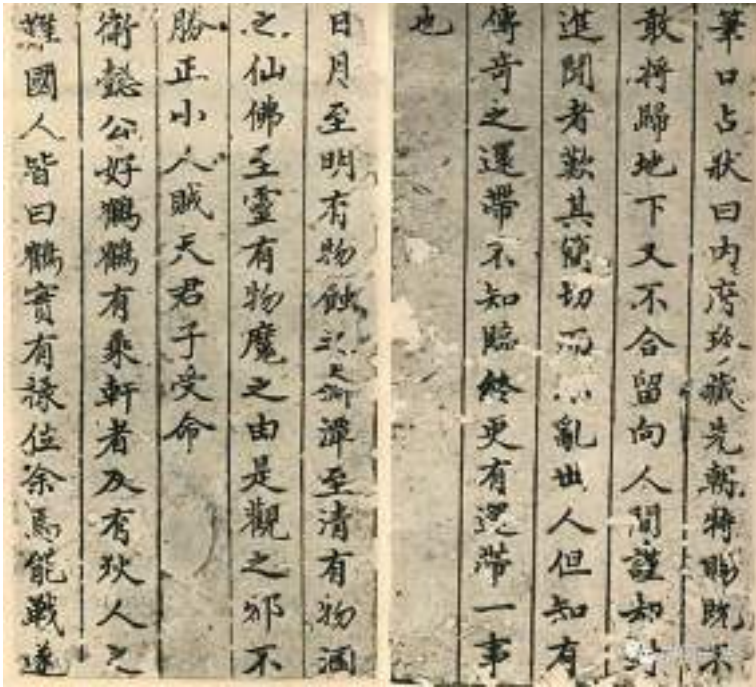 筆口占狀曰内府珎藏先朝特賜既不
敢將歸地下又不合留向人間謹却封
進聞者歎其簡切而不亂世人但知有
傳奇之還帶不知臨終更有還帶一事
也
日月至明有物蝕之潭至清有物涸
之仙佛至靈有物魔之由是觀之邪不
勝正小人賊天君子受命
衛懿公好鶴鶴有乘軒者及有狄人之
難國人皆曰鶴實有祿位余焉能戰遂